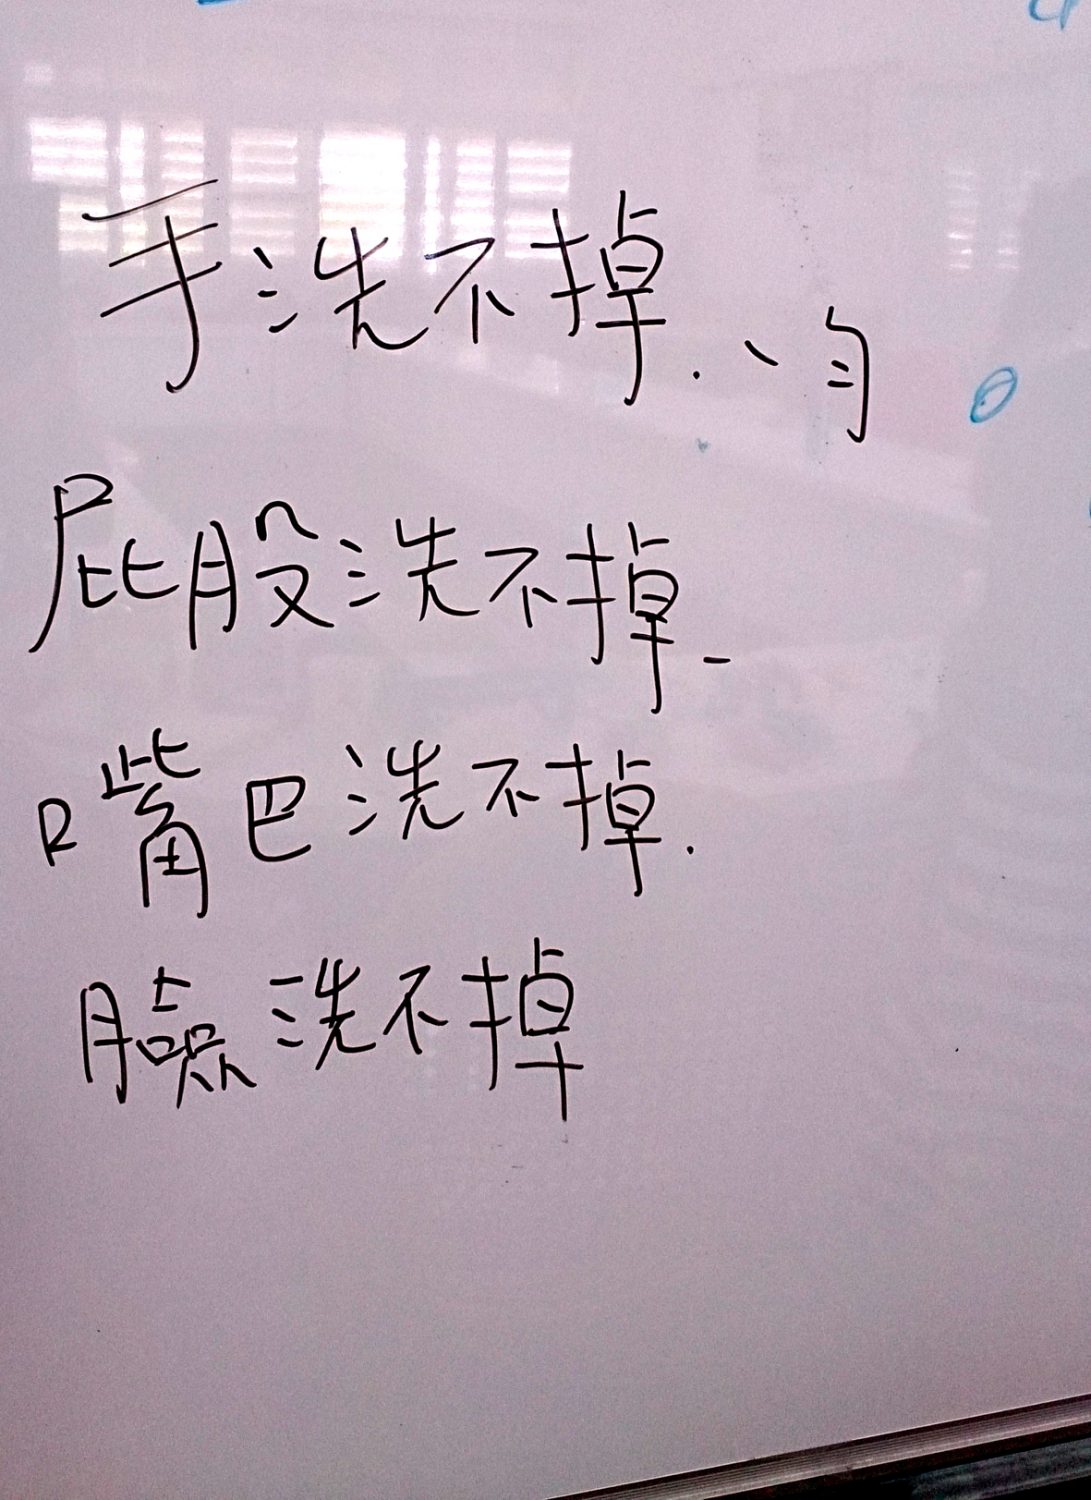 手洗不掉.、
屁股洗不掉-
嘴巴洗不掉.
臉洗不掉